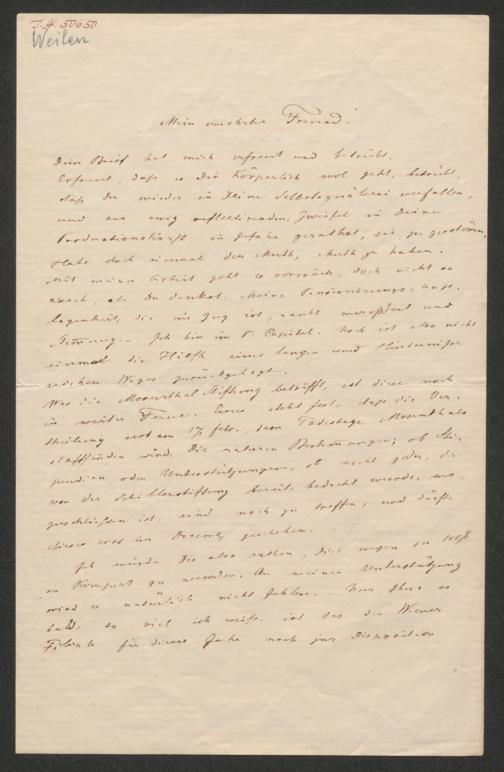 I.N. 50650
Weilen
Mein verehrter Freund!
Dein Brief hat mich erfreut und betrübt.
Erfreut, daß es Dir körperlich wol geht, betrübt,
daß Du wieder in Deine Selbstquälerei verfallen,
und aus ewig reflectirenden Zweifel in Deine
Productionskraft in Gefahr geräthst, sie zu zerstören.
Habe doch einmal den Muth, Muth zu haben.
Mit meiner Arbeit geht es vorwärts, doch nicht so
rasch, als Du denkst. Meine Pensionirungsange-
legenheit, die im Zug ist, raubt mir Zeit und
Stimmung. Ich bin im 8. Capitel. Noch ist also nicht
einmal die Hälfte eines langen und Hindernisse
reichen Weges zurückgelegt.
Was die Mosenthal Stiftung betrifft, ist diese noch
in weiter Ferne. Eines steht fest, daß die Ver-
theilung erst am 17 Febr., dem Todestage Mosenthals
stattfinden wird. Die näheren Bestimmungen, ob Sti-
pendien oder Unterstützungen, ob nicht jeder, der
von der Schillerstiftung bereits bedacht wurde, aus-
geschlossen ist, sind noch zu treffen, und dürfte
dieses erst im Decemb. geschehen.
Ich würde Dir also rathen, Dich wegen der 100 fl
an Kompert zu wenden. An meiner Unterstützung
wird es natürlich nicht fehlen. Nur thue es
bald, so viel ich weiß ist das der Wiener
Filiale für dieses Jahr noch zur Disposition